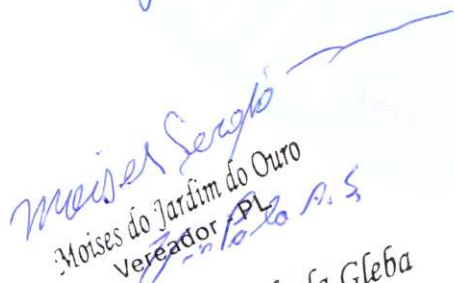 Moises Sergio
Moises do Jardim do Ouro
Vereador - PL
Paulo A. S.
da Gleba